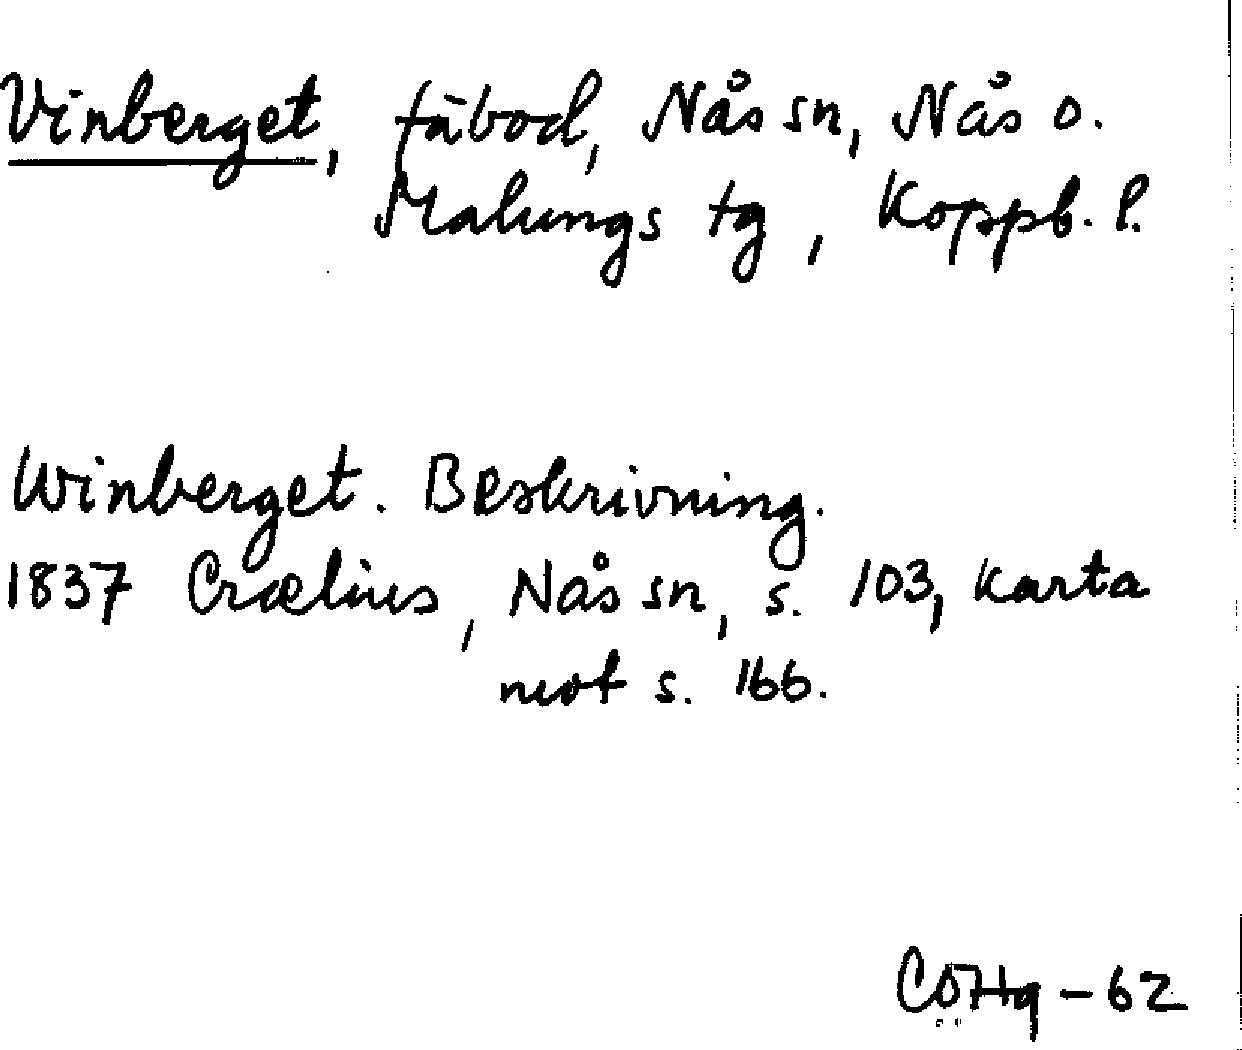 Vinberget, fäbod, Nås sn, Nås o.
Malungs tg, Koppb. l.
Winberget. Beskrivning.
1837 Crælius, Nås sn, s. 103, karta
mot s. 166.
CÖHg - 62